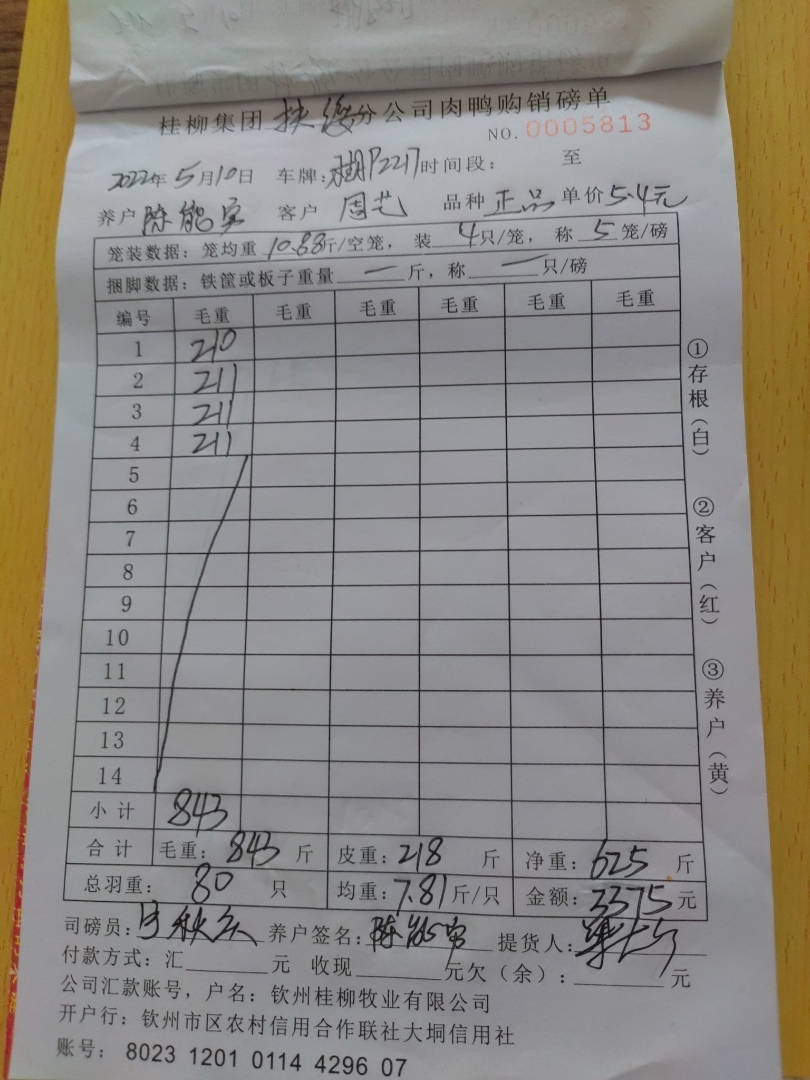 桂柳集团扶绥分公司肉鸭购销磅单
NO. 0005813
2022年5月10日 车牌:湘P2217 时间段: 至
养户 陈能 客户 周艺 品种 正品 单价5.4元
笼装数据:笼均重 10.88斤/空笼, 装 4只/笼, 称 5 笼/磅
捆脚数据:铁筐或板子重量 — 斤,称 — 只/磅
编号 毛重 毛重 毛重 毛重 毛重 毛重
1 210
2 211
3 211
4 211
5
6
7
8
9
10
11
12
13
14
小计 843
合计 毛重: 843 斤 皮重: 218 斤 净重: 625 斤
总羽重: 80 只 均重: 7.81斤/只 金额: 3375元
司磅员: 养户签名: 陈能 提货人:
付款方式:汇 元 收现 元欠(余): 元
公司汇款账号,户名:钦州桂柳牧业有限公司
开户行:钦州市区农村信用合作联社大垌信用社
账号: 8023 1201 0114 4296 07
①存根(白)
②客户(红)
③养户(黄)